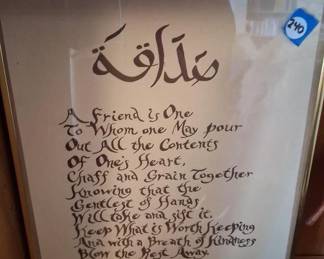 240
صَدَاقَة
A Friend is One
To Whom one May pour
Out All the Contents
Of One's Heart,
Chaff and Grain Together
Knowing that the
Gentlest of Hands
Will take and sift it,
Keep What is Worth Keeping
And with a Breath of Kindness
Blow the Rest Away.